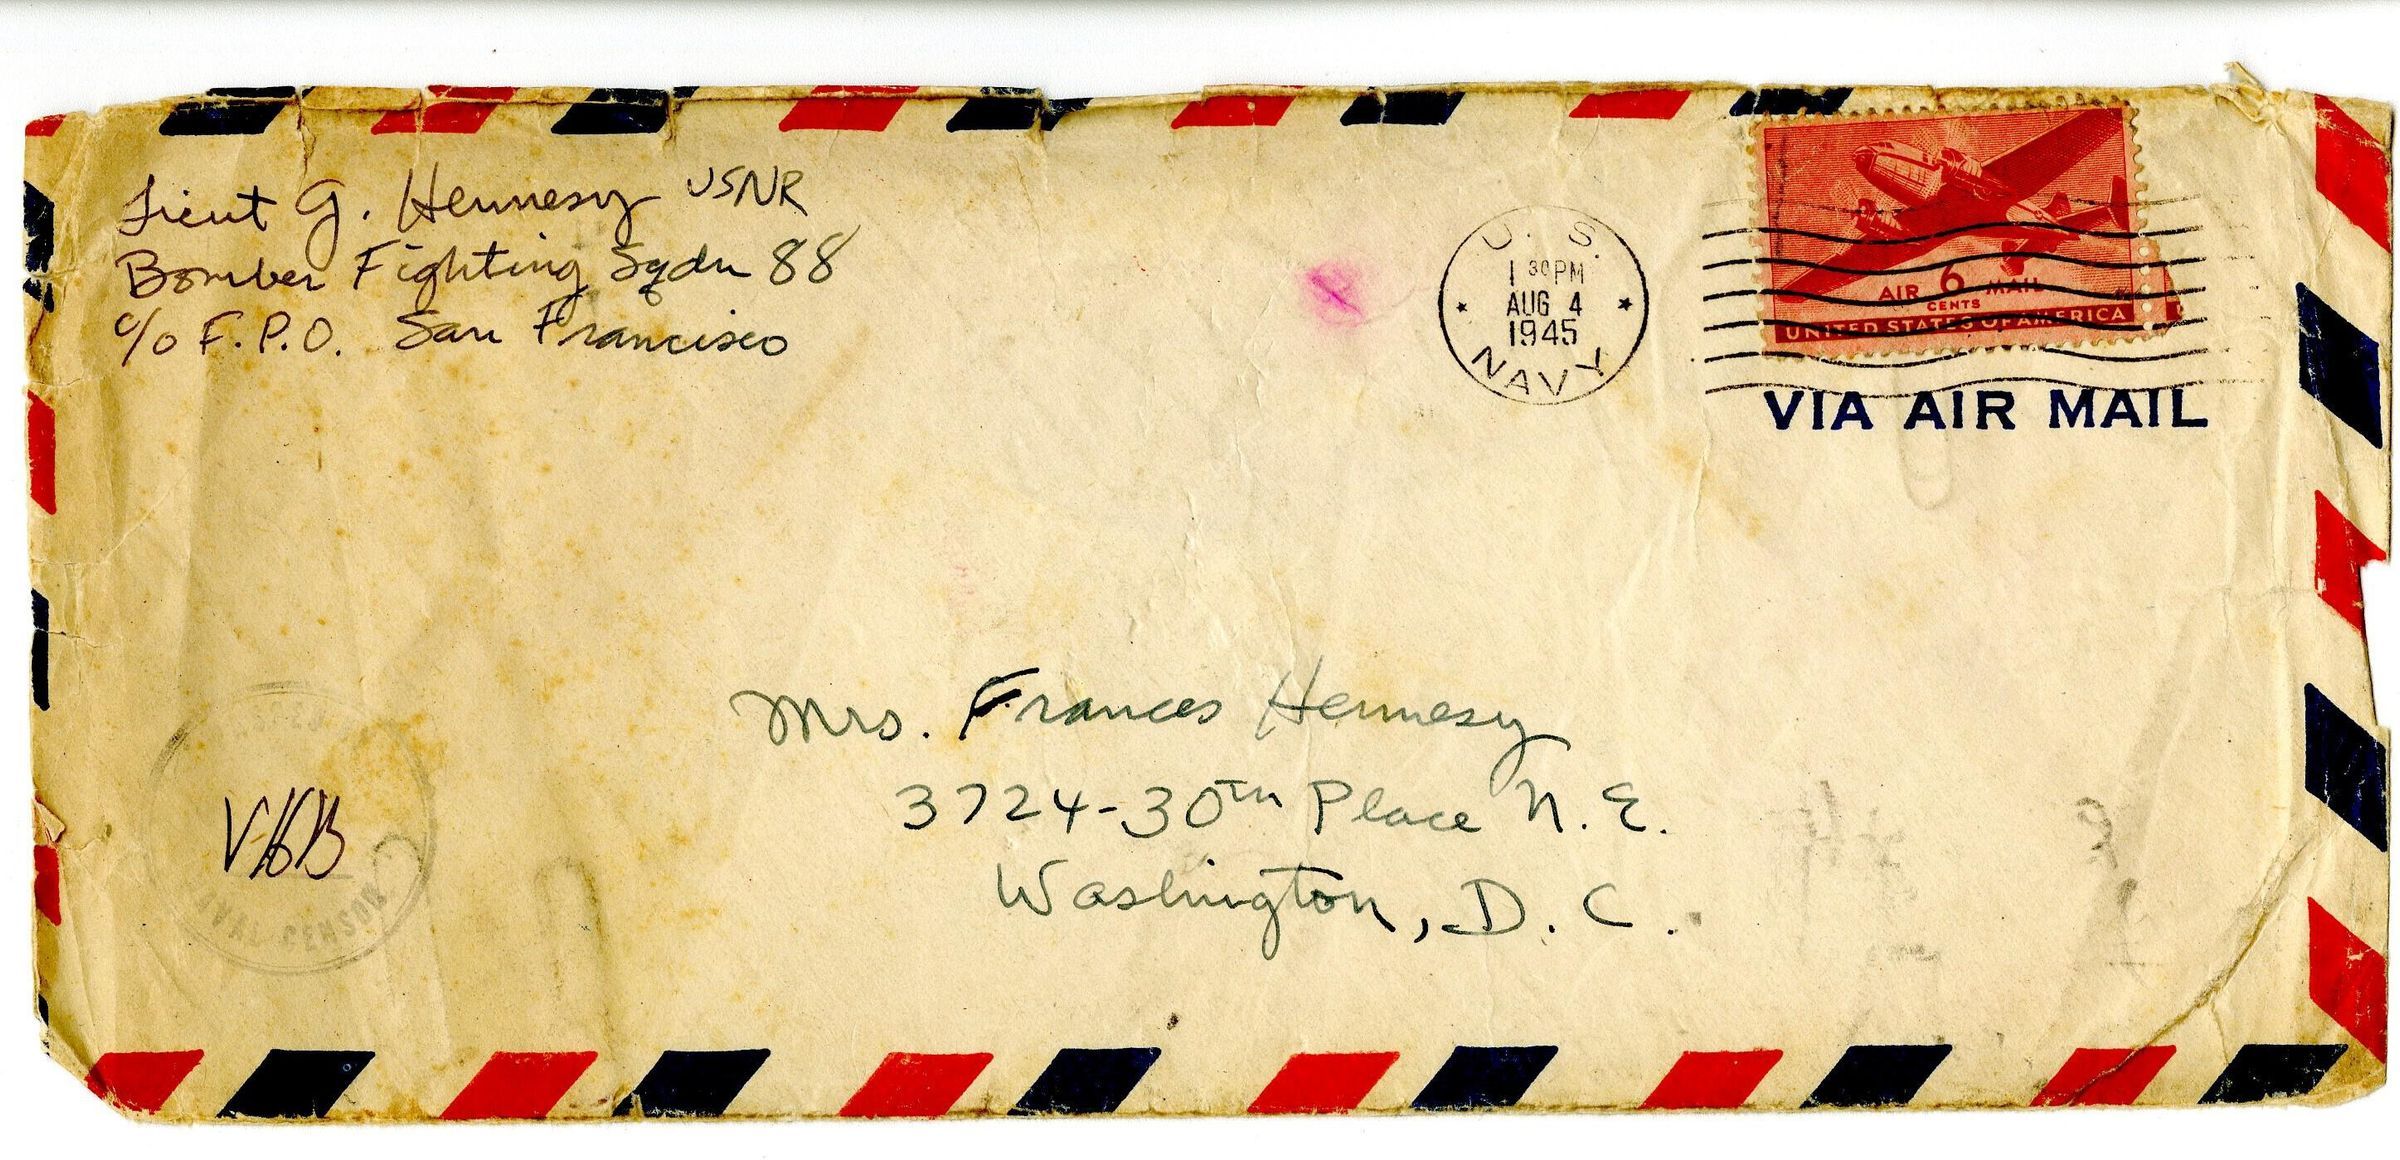 Lieut G. Hennesy USNR
Bomber Fighting Sqdn 88
c/o F.P.O. San Francisco
U.S.
1 30 PM
AUG 4
1945
NAVY
AIR 6 MAIL
CENTS
UNITED STATES OF AMERICA
VIA AIR MAIL
Mrs. Frances Hennesy
3724-30th Place N.E.
Washington, D.C.
PASSED
NAVAL CENSOR